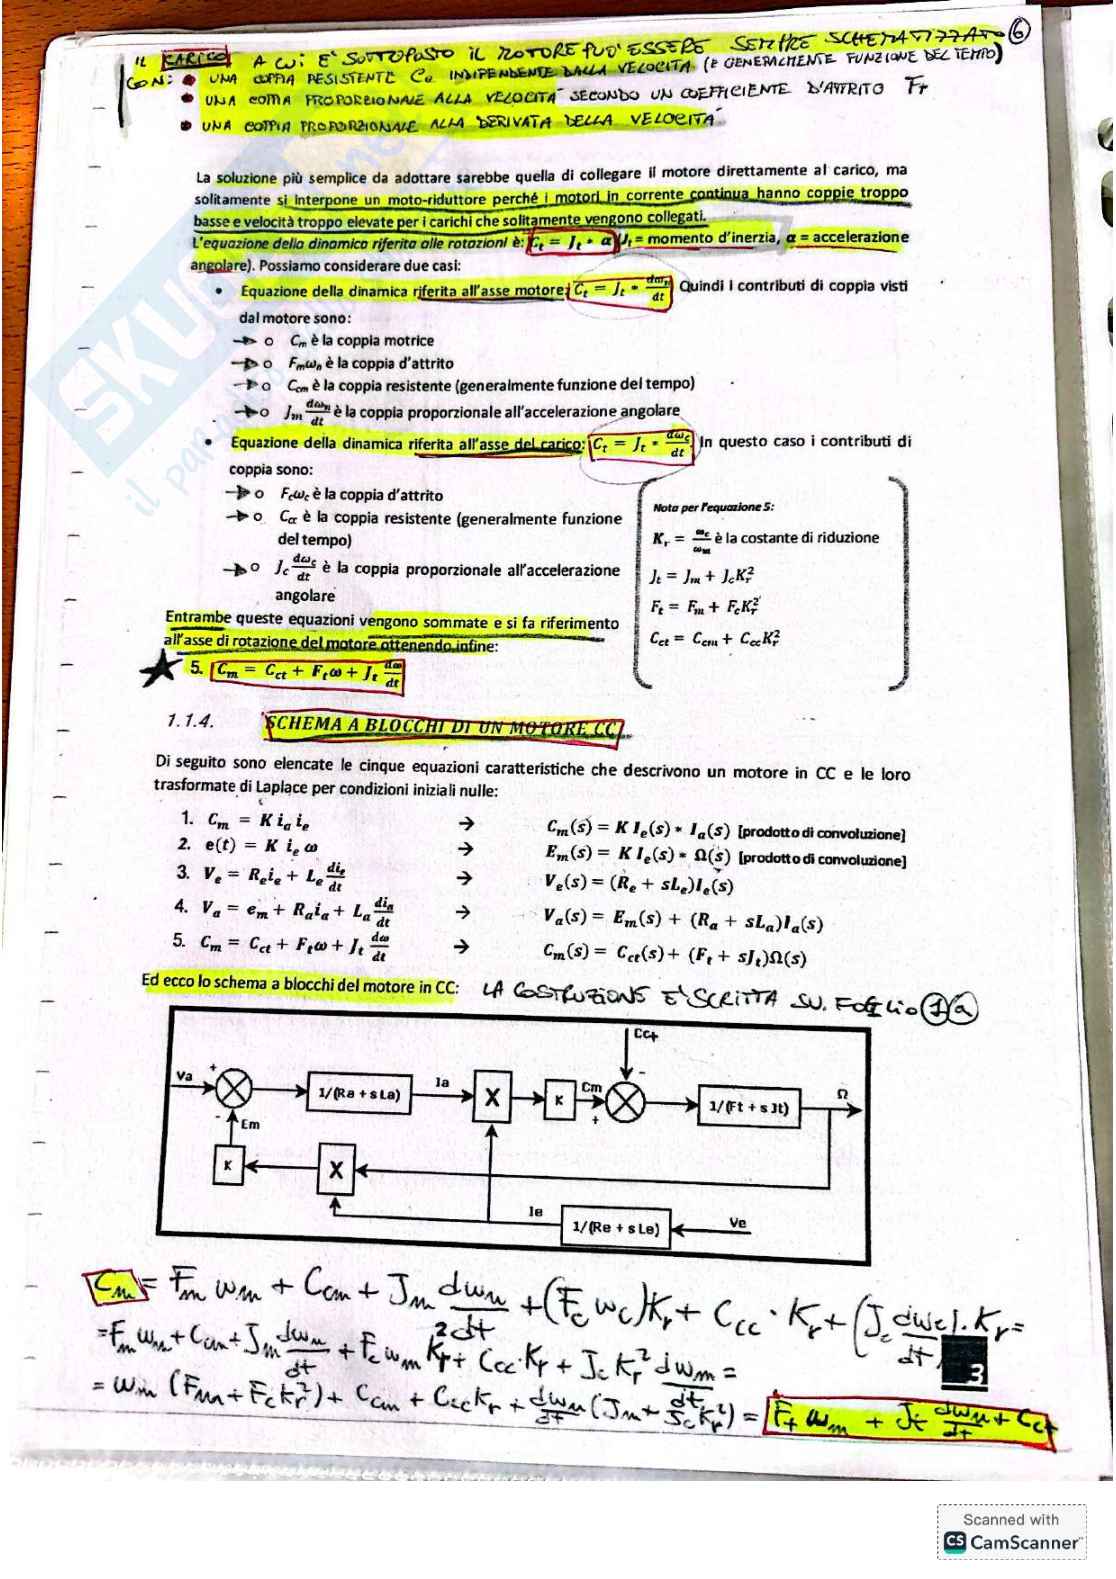 6
IL CARICO A CUI E' SOTTOPOSTO IL MOTORE PUO' ESSERE SEMPRE SCHEMATIZZATO
CON: • UNA COPPIA RESISTENTE Cc INDIPENDENTE DALLA VELOCITA (E GENERALMENTE FUNZIONE DEL TEMPO)
• UNA COPPIA PROPORZIONALE ALLA VELOCITA' SECONDO UN COEFFICIENTE D'ATTRITO Ft
• UNA COPPIA PROPORZIONALE ALLA DERIVATA DELLA VELOCITA'
La soluzione più semplice da adottare sarebbe quella di collegare il motore direttamente al carico, ma
solitamente si interpone un moto-riduttore perché i motori in corrente continua hanno coppie troppo
basse e velocità troppo elevate per i carichi che solitamente vengono collegati.
L'equazione della dinamica riferita alle rotazioni è: Ct = Jt * α (Jt = momento d'inerzia, α = accelerazione
angolare). Possiamo considerare due casi:
• Equazione della dinamica riferita all'asse motore: Ct = Jt * dωm/dt Quindi i contributi di coppia visti
dal motore sono:
o Cm è la coppia motrice
o Fmωn è la coppia d'attrito
o Ccm è la coppia resistente (generalmente funzione del tempo)
o Jm dωm/dt è la coppia proporzionale all'accelerazione angolare
• Equazione della dinamica riferita all'asse del carico: Ct = Jt * dωc/dt In questo caso i contributi di
coppia sono:
o Fcωc è la coppia d'attrito
o Ccc è la coppia resistente (generalmente funzione
del tempo)
o Jc dωc/dt è la coppia proporzionale all'accelerazione
angolare
Nota per l'equazione 5:
Kr = ωc/ωm è la costante di riduzione
Jt = Jm + JcKr²
Ft = Fm + FcKr²
Cct = Ccm + CccKr²
Entrambe queste equazioni vengono sommate e si fa riferimento
all'asse di rotazione del motore ottenendo infine:
5. Cm = Cct + Ftω + Jt dω/dt
1.1.4. SCHEMA A BLOCCHI DI UN MOTORE CC
Di seguito sono elencate le cinque equazioni caratteristiche che descrivono un motore in CC e le loro
trasformate di Laplace per condizioni iniziali nulle:
1. Cm = K ia ie → Cm(s) = K Ie(s) * Ia(s) [prodotto di convoluzione]
2. e(t) = K ie ω → Em(s) = K Ie(s) * Ω(s) [prodotto di convoluzione]
3. Ve = Reie + Le die/dt → Ve(s) = (Re + sLe)Ie(s)
4. Va = em + Raia + La dia/dt → Va(s) = Em(s) + (Ra + sLa)Ia(s)
5. Cm = Cct + Ftω + Jt dω/dt → Cm(s) = Cct(s) + (Ft + sJt)Ω(s)
Ed ecco lo schema a blocchi del motore in CC: LA COSTRUZIONE E' SCRITTA SU. FOGLIO 1a
Cct
-
Va + 1/(Ra + s La) Ia X K Cm + 1/(Ft + s Jt) Ω
- Em
K X
Ie 1/(Re + s Le) Ve
Cm = Fm ωm + Ccm + Jm dωm/dt + (Fc ωc)Kr + Ccc · Kr + (Jc dωc/dt) · Kr =
= Fm ωm + Ccm + Jm dωm/dt + Fc ωm Kr² + Ccc · Kr + Jc Kr² dωm/dt =
= ωm (Fm + Fc Kr²) + Ccm + Ccc Kr + dωm/dt (Jm + Jc Kr²) = Ft ωm + Jt dωm/dt + Cct
3
Scanned with
CS CamScanner